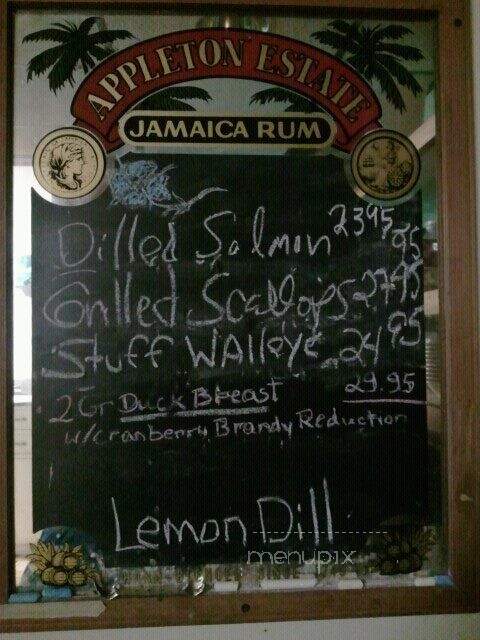 APPLETON ESTATE
JAMAICA RUM
Dilled Salmon 23 95
Grilled Scallops 27 95
Stuff WAlleye 24 95
2 Gr Duck Breast 29.95
w/cranberry Brandy Reduction
Lemon Dill
menupix